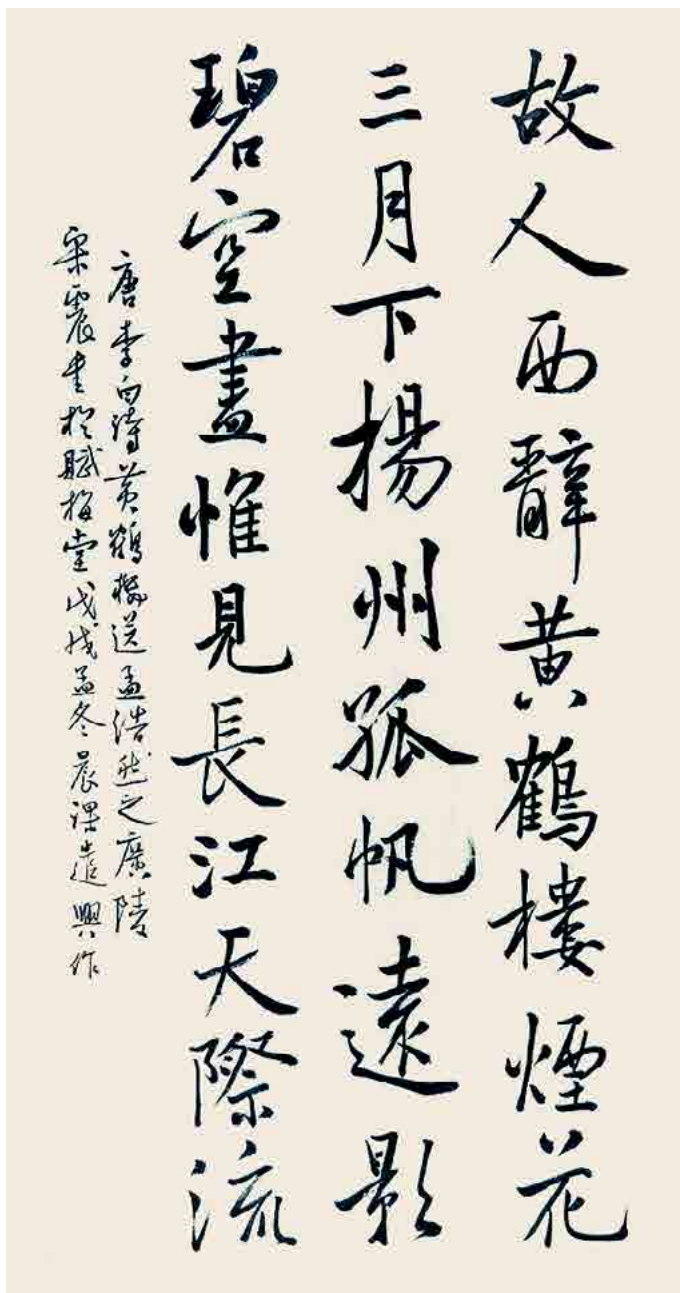 故人西辭黃鶴樓煙花
三月下揚州孤帆遠影
碧空盡惟見長江天際流
唐李白詩黃鶴樓送孟浩然之廣陵
震書於賦梅堂戊戌孟冬晨課遣興作